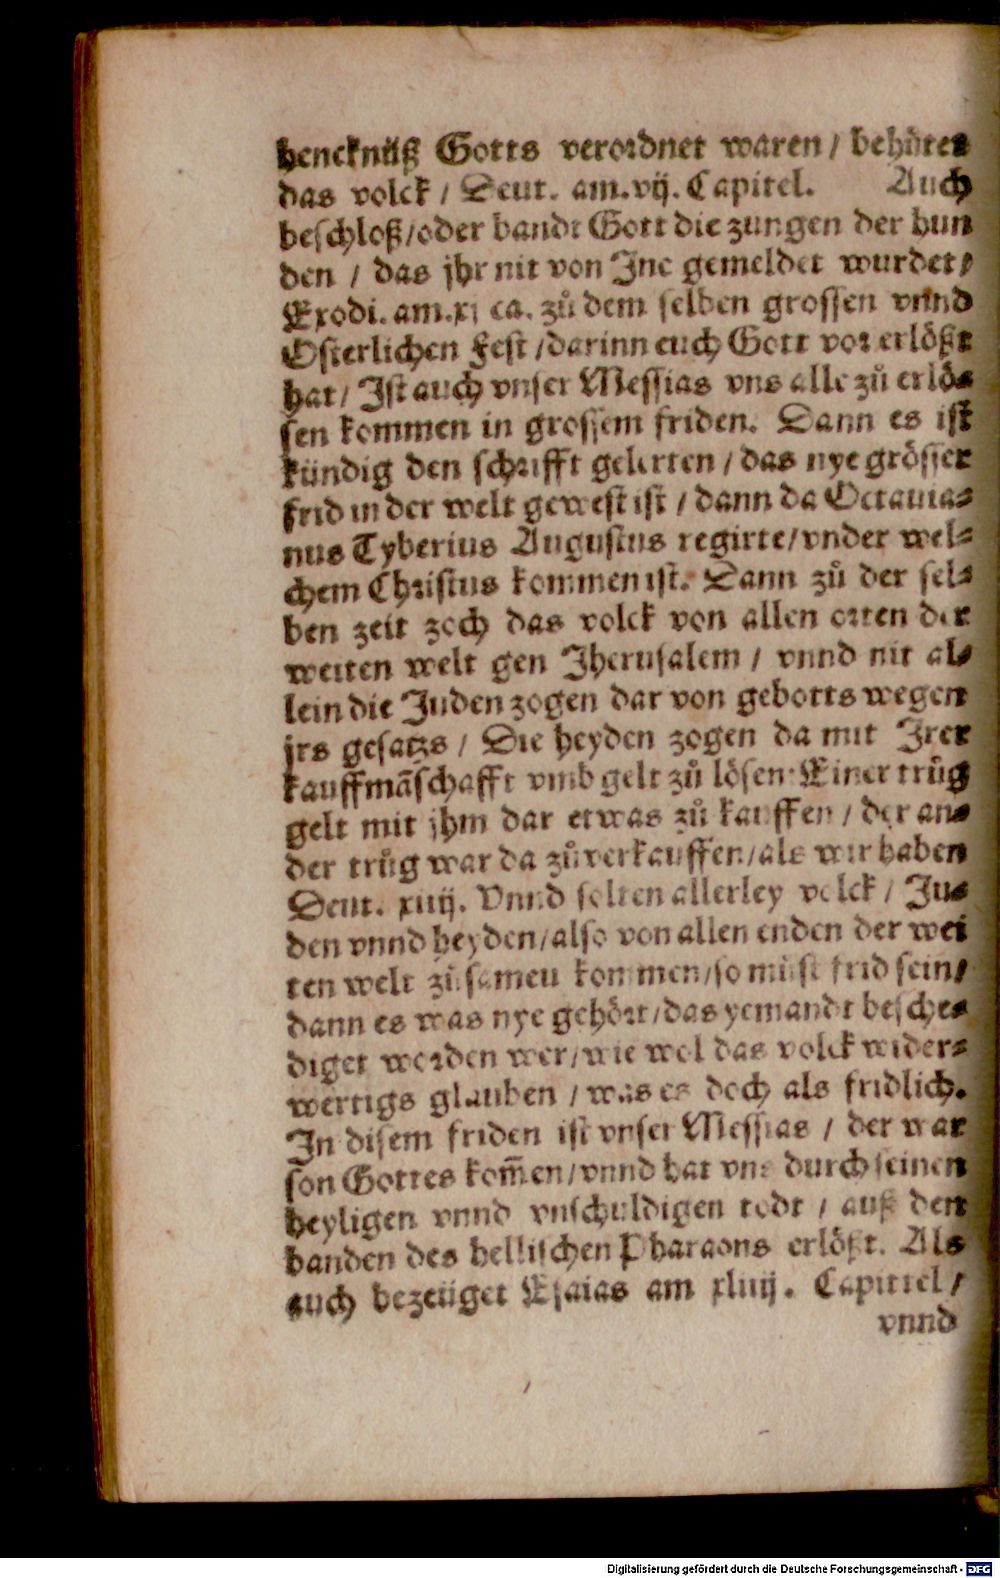 hencknüß Gotts verordnet waren / behütet
das volck / Deut. am.vij. Capitel. Auch
beschloß/oder bandt Gott die zungen der hun
den / das jhr nit von Inē gemeldet wurdet/
Exodi. am.xj ca. zů dem selben grossen vnnd
Osterlichen Fest /darinn euch Gott vor erlößt
hat/ Ist auch vnser Messias vns alle zů erlö⸗
sen kommen in grossem friden. Dann es ist
kündig den schrifft gelerten / das nye grösser
frid in der welt gewest ist / dann da Octauia⸗
nus Tyberius Augustus regirte/vnder wel⸗
chem Christus kommen ist. Dann zů der sel⸗
ben zeit zoch das volck von allen orten der
weiten welt gen Jherusalem / vnnd nit al⸗
lein die Juden zogen dar von gebotts wegen
jrs gesatzs / Die heyden zogen da mit Irer
kauffmāschafft vmb gelt zů lösen: Einer trůg
gelt mit jhm dar etwas zů kauffen / der an⸗
der trůg war da zů verkauffen/als wir haben
Deut. xiiij. Vnnd solten allerley volck / Ju⸗
den vnnd heyden/also von allen enden der wei
ten welt zůsamen kommen/so můst frid sein/
dann es was nye gehört/das yemandt besche⸗
diget worden wer/wie wol das volck wider⸗
wertigs glauben / was es doch als fridlich.
In disem friden ist vnser Messias / der war
son Gottes kom̄en/vnnd hat vns durch seinen
heyligen vnnd vnschuldigen todt / auß den
banden des hellischen Pharaons erlößt. Als
auch bezeüget Esaias am xliiij. Capittel /
vnnd
Digitalisierung gefördert durch die Deutsche Forschungsgemeinschaft - DFG